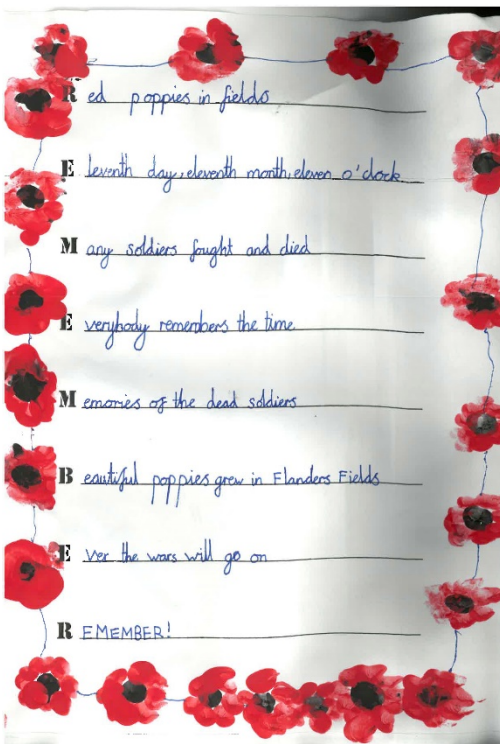 Red poppies in fields
Eleventh day, eleventh month, eleven o'clock
Many soldiers fought and died
Everybody remembers the time.
Memories of the dead soldiers
Beautiful poppies grew in Flanders Fields
Ever the wars will go on
REMEMBER!